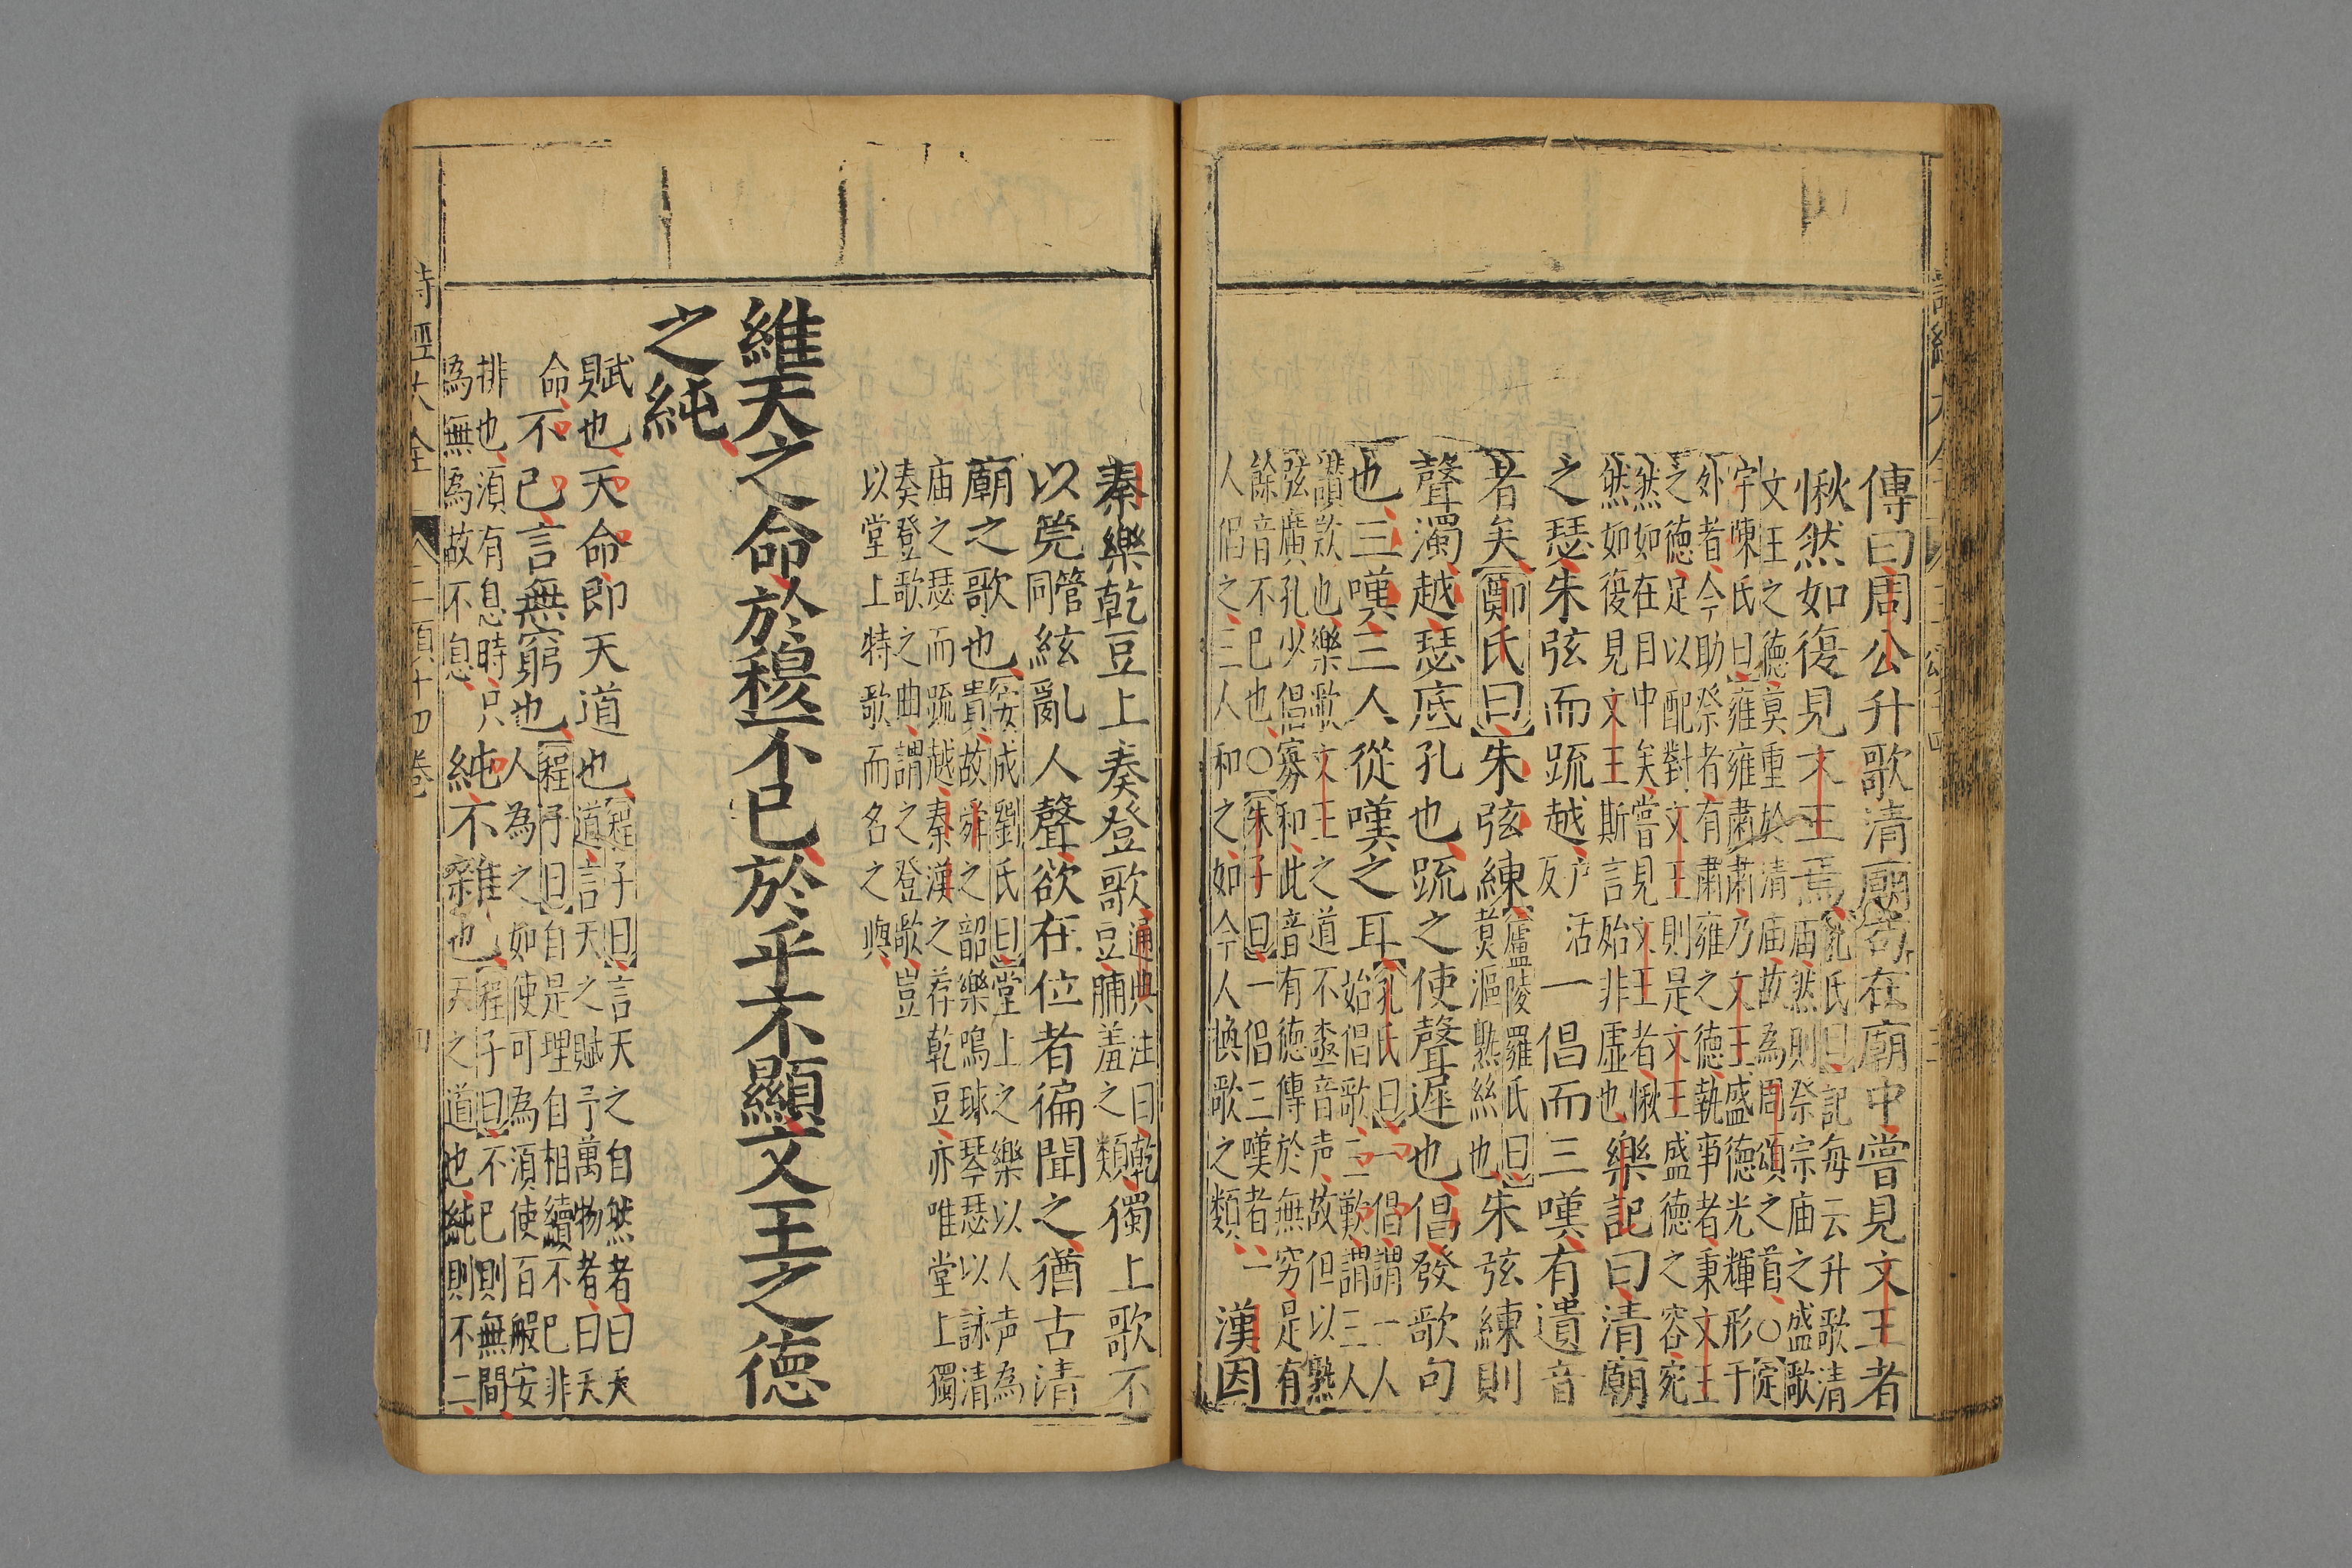 傳曰周公升歌清廟苟在廟中嘗見文王者
愀然如復見文王焉孔氏曰記每云升歌清
庙然則祭宗庙之盛歌
文王之德莫重於清庙故為周頌之首○定
宇陳氏曰雍雍肅肅乃文王盛德光輝形于
外者今助祭者有肅雍之德執事者秉文王
之德足以配對文王則是文王盛德之容宛
然如在目中矣嘗見文王者愀
然如復見文王斯言始非虛也樂記曰清廟
之瑟朱弦而疏越户活
反一倡而三嘆有遺音
者矣鄭氏曰朱弦練廬陵羅氏曰
黄漚熟絲也朱弦練則
聲濁越瑟底孔也疏之使聲遲也倡發歌句
也三嘆三人從嘆之耳孔氏曰一倡謂一人
始倡歌三歎謂三人
讃歎也樂歌文王之道不壺音声故但以熟
弦廣孔少倡寡和此音有德傳於無穷是有
餘音不已也○朱子曰一倡三嘆者一
人倡之三人和之如今人換歌之類漢因
秦樂乾豆上奏登歌通典注曰乾
豆脯羞之類獨上歌不
以筦同管絃亂人聲欲在位者徧聞之猶古清
廟之歌也安成劉氏曰堂上之樂以人声為
貴故舜之韶樂鳴球琴瑟以詠清
庙之瑟而疏越秦漢之荐乾豆亦唯堂上獨
奏登歌之曲謂之登歌豈
以堂上特歌而名之與
維天之命於穆不已於乎不顯文王之德
之純
賦也天命即天道也程子曰言天之自然者曰天
道言天之賦予萬物者曰天
命不已言無窮也程子曰自是理自相續不已非
人為之如使可為須使百般安
排也須有息時只
為無為故不息純不雜也程子曰不已則無間
天之道也純則不二
詩經大全
三頌十四卷
四